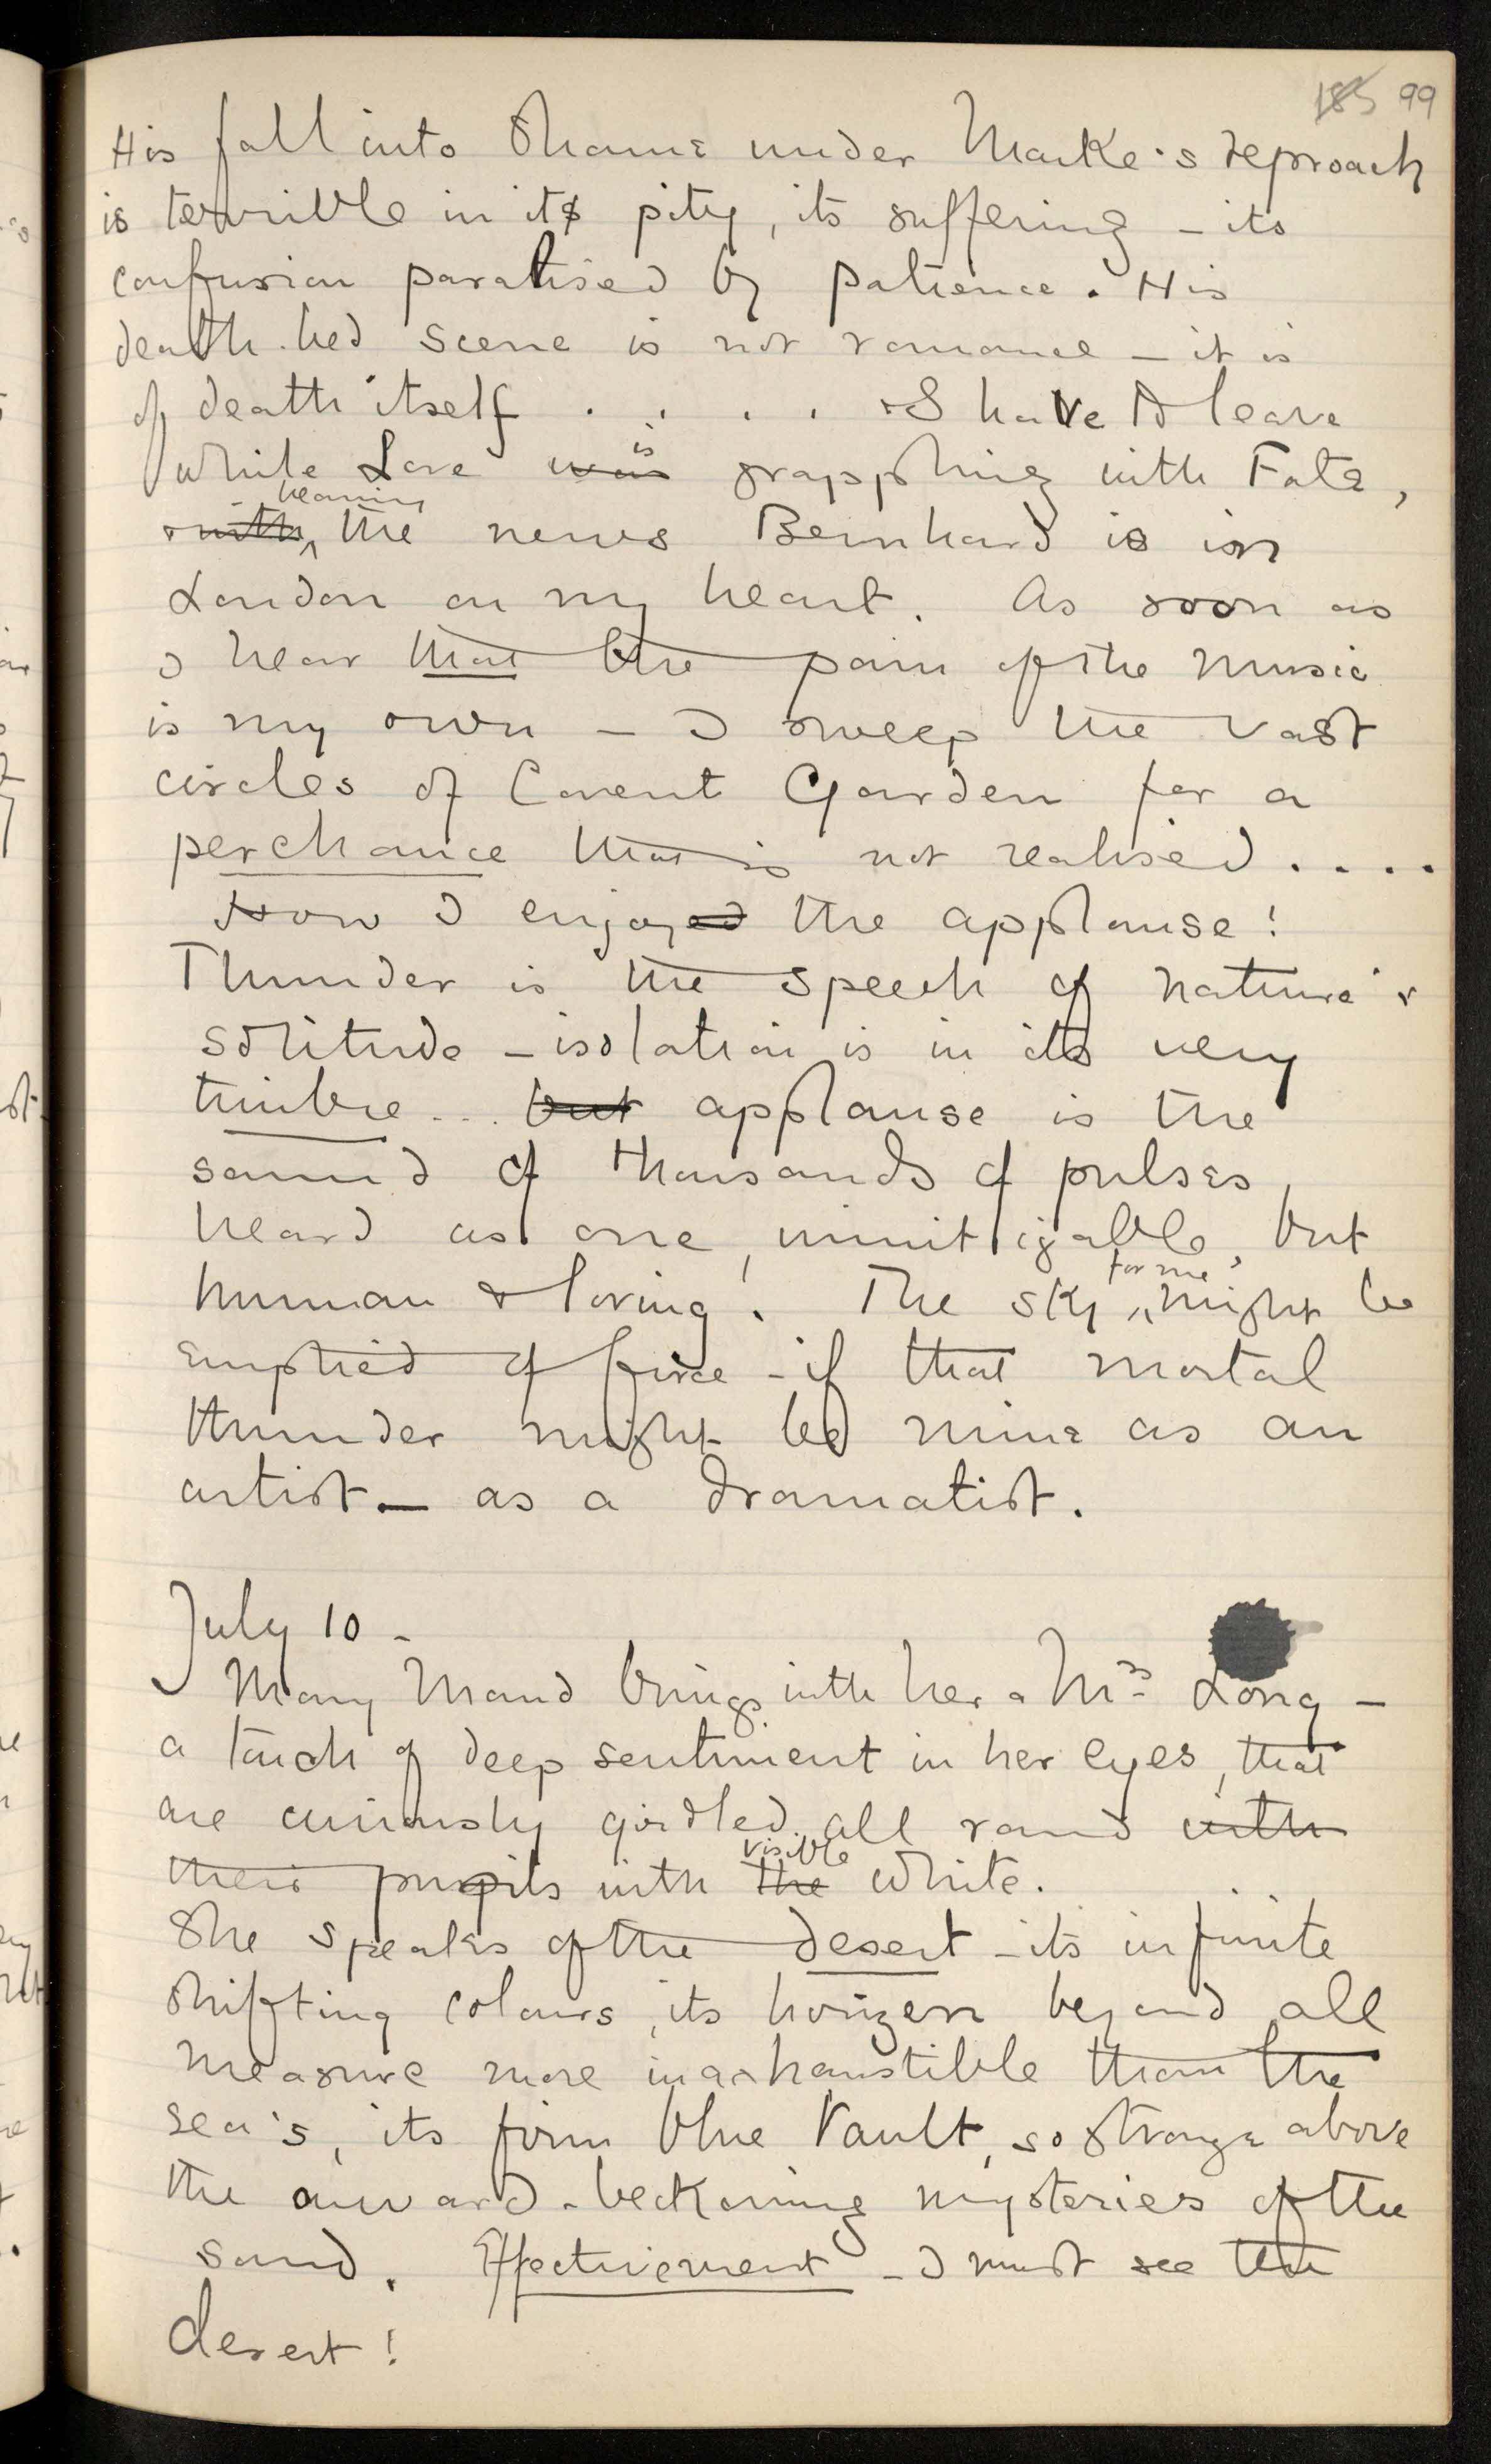 185 99
His fall into shame under Marke's reproach
is terrible in its pity, its suffering – its
confusion paralised by patience. His
death-bed scene is not romance – it is
of death itself . . . . & I have to leave
while Love was is grappling with Fate,
& with, bearing the news Bernhard is in
London on my heart. As soon as
I hear that the pain of the music
is my own – I sweep the vast
circles of Covent Garden for a
perchance that is not realised . . . .
How I enjoyed the applause!
Thunder is the speech of nature's
solitude – isolation is in its very
timbre ... but applause is the
sound of thousands of pulses,
heard as one, unmitigable, but
human & loving! The sky for me might be
emptied of force – if that mortal
thunder might be mine as an
artist – as a dramatist.
July 10 –
Mary Maud brings with her a Mrs Long –
a touch of deep sentiment in her eyes, that
are curiously girdled all round with
their pupils with the visible white.
She speaks of the desert – its infinite
shifting colours, its horizon beyond all
measure more inexhaustible than the
sea's, its firm blue vault, so strange above
the onward-beckoning mysteries of the
sand. Effectivement – I must see the
desert!